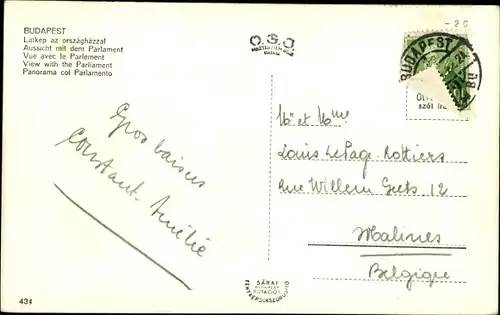 BUDAPEST
Látkép az országházzal
Aussicht mit dem Parlament
Vue avec le Parlement
View with the Parliament
Panorama col Parlamento
- 2 G
O.S.J.
BUDAPEST
szót
Gros baisers
Constant-Amélie
Mr et Mme
Louis LePage-Rottiers
Rue Willem Geets 12
Malines
Belgique
SÁRAI
BUDAPEST
434